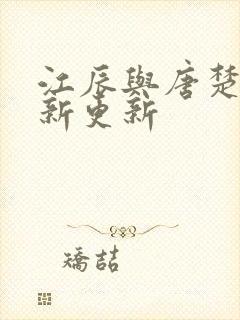 江辰與唐楚
新更新
矯喆